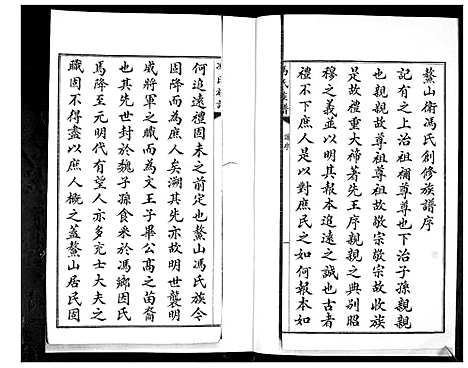 鰲山衛馮氏創修族譜序
記有之上治祖禰尊尊也下治子孫親親
也親親故尊祖尊祖故敬宗敬宗故收族
是故禮重大禘著先王序親親之典別昭
穆之義並以明其報本追遠之誠也古者
禮不下庶人是以對庶民之如何報本如
馮氏族譜
譜序
一
何追遠禮固未之前定也鰲山馮氏族今
固降而為庶人矣溯其先亦故明世襲明
威將軍之職而為文王子畢公高之苗裔
也其先世封於魏子孫食釆於馮鄉因氏
馬降至元明代有望人亦多充士大夫之
職固不得盡以庶人概之蓋鰲山居民固